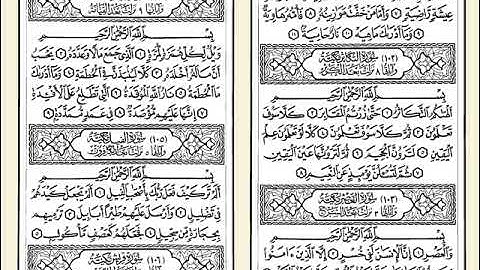 عِيشَةٍ رَّاضِيَةٍ ٧ وَأَمَّا مَنْ خَفَّتْ مَوَٰزِينُهُۥ ٨ فَأُمُّهُۥ هَاوِيَةٌ
٩ وَمَآ أَدْرَىٰكَ مَا هِيَهْ ١٠ نَارٌ حَامِيَةٌۢ ١١
(١٠٢) سورة التكاثر مكية
وآياتها ٨ نزلت بعد الكوثر
بِسْمِ ٱللَّهِ ٱلرَّحْمَٰنِ ٱلرَّحِيمِ
أَلْهَىٰكُمُ ٱلتَّكَاثُرُ ١ حَتَّىٰ زُرْتُمُ ٱلْمَقَابِرَ ٢ كَلَّا سَوْفَ
تَعْلَمُونَ ٣ ثُمَّ كَلَّا سَوْفَ تَعْلَمُونَ ٤ كَلَّا لَوْ تَعْلَمُونَ عِلْمَ
ٱلْيَقِينِ ٥ لَتَرَوُنَّ ٱلْجَحِيمَ ٦ ثُمَّ لَتَرَوُنَّهَا عَيْنَ ٱلْيَقِينِ
٧ ثُمَّ لَتُسْـَٔلُنَّ يَوْمَئِذٍ عَنِ ٱلنَّعِيمِ ٨
(١٠٣) سورة العصر مكية
وآياتها ٣ نزلت بعد الشرح
بِسْمِ ٱللَّهِ ٱلرَّحْمَٰنِ ٱلرَّحِيمِ
وَٱلْعَصْرِ ١ إِنَّ ٱلْإِنسَٰنَ لَفِى خُسْرٍ ٢ إِلَّا ٱلَّذِينَ ءَامَنُوا۟
وآياتها ٩ نزلت بعد القيامة
بِسْمِ ٱللَّهِ ٱلرَّحْمَٰنِ ٱلرَّحِيمِ
وَيْلٌ لِّكُلِّ هُمَزَةٍ لُّمَزَةٍ ١ ٱلَّذِى جَمَعَ مَالًا وَعَدَّدَهُۥ ٢ يَحْسَبُ
أَنَّ مَالَهُۥٓ أَخْلَدَهُۥ ٣ كَلَّا لَيُنۢبَذَنَّ فِى ٱلْحُطَمَةِ ٤ وَمَآ أَدْرَىٰكَ
مَا ٱلْحُطَمَةُ ٥ نَارُ ٱللَّهِ ٱلْمُوقَدَةُ ٦ ٱلَّتِى تَطَّلِعُ عَلَى ٱلْأَفْـِٔدَةِ
٧ إِنَّهَا عَلَيْهِم مُّؤْصَدَةٌ ٨ فِى عَمَدٍ مُّمَدَّدَةٍۭ ٩
(١٠٥) سورة الفيل مكية
وآياتها ٥ نزلت بعد الكافرون
بِسْمِ ٱللَّهِ ٱلرَّحْمَٰنِ ٱلرَّحِيمِ
أَلَمْ تَرَ كَيْفَ فَعَلَ رَبُّكَ بِأَصْحَٰبِ ٱلْفِيلِ ١ أَلَمْ يَجْعَلْ كَيْدَهُمْ
فِى تَضْلِيلٍ ٢ وَأَرْسَلَ عَلَيْهِمْ طَيْرًا أَبَابِيلَ ٣ تَرْمِيهِم
بِحِجَارَةٍ مِّن سِجِّيلٍ ٤ فَجَعَلَهُمْ كَعَصْفٍ مَّأْكُولٍۭ ٥
(١٠٦) سورة قريش مكية